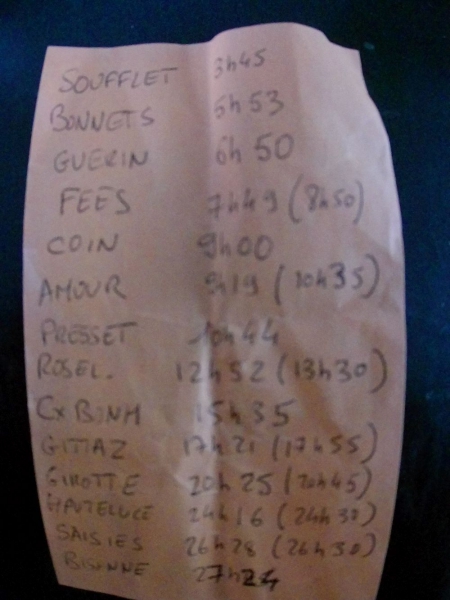 SOUFFLET 3h45
BONNETS 5h53
GUERIN 6h50
FEES 7h49 (8h50)
COIN 9h00
AMOUR 9h19 (10h35)
PRESSET 10h44
ROSEL. 12h52 (13h30)
Cx BONH 15h35
GITTAZ 17h21 (17h55)
GIROTTE 20h25 (20h45)
HAUTELUCE 24h16 (24h30)
SAISIES 26h28 (26h30)
BISANNE 27h24